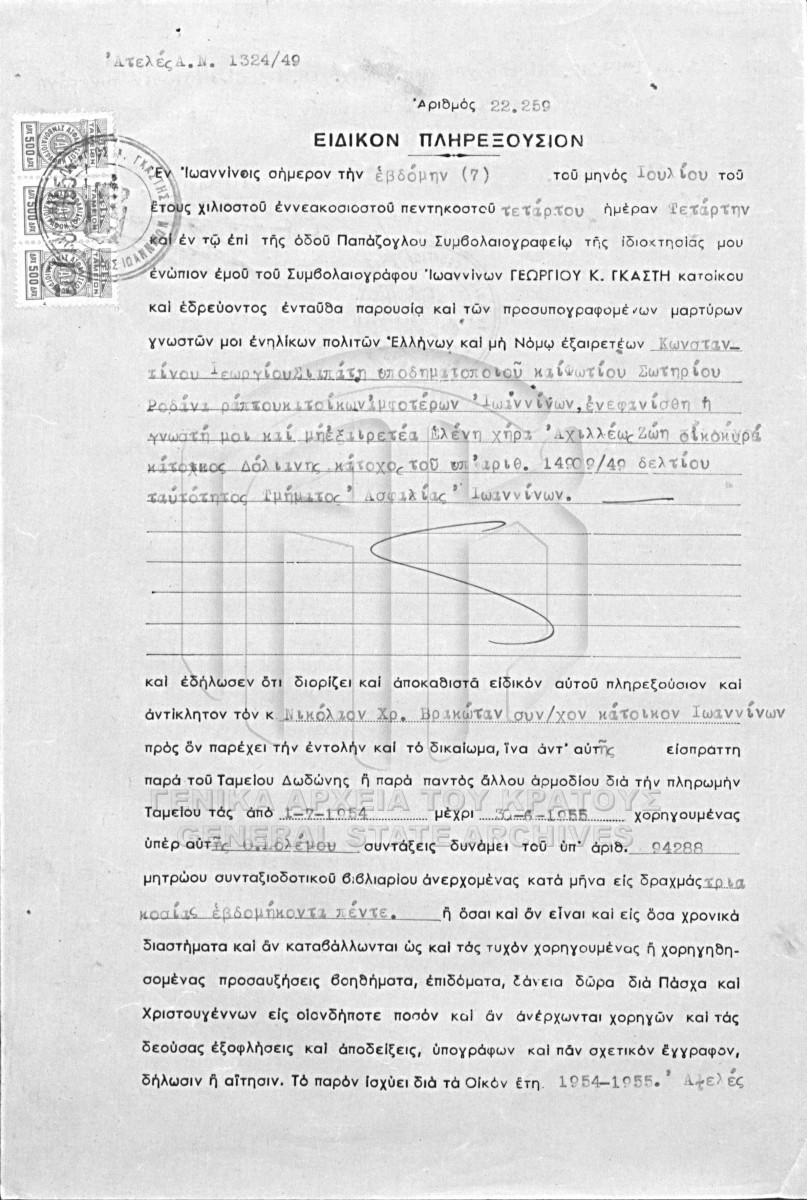 Ἀτελές Α.Ν. 1324/49
Ἀριθμός 22.259
ΕΙΔΙΚΟΝ ΠΛΗΡΕΞΟΥΣΙΟΝ
Ἐν Ἰωαννίνοις σήμερον τὴν ἑβδόμην (7) τοῦ μηνός Ἰουλίου τοῦ
ἔτους χιλιοστοῦ ἐννεακοσιοστοῦ πεντηκοστοῦ τετάρτου ἡμέραν Τετάρτην
καὶ ἐν τῷ ἐπὶ τῆς ὁδοῦ Παπάζογλου Συμβολαιογραφείῳ τῆς ἰδιοκτησίας μου
ἐνώπιον ἐμοῦ τοῦ Συμβολαιογράφου Ἰωαννίνων ΓΕΩΡΓΙΟΥ Κ. ΓΚΑΣΤΗ κατοίκου
καὶ ἑδρεύοντος ἐνταῦθα παρουσίᾳ καὶ τῶν προσυπογραφομένων μαρτύρων
γνωστῶν μοι ἐνηλίκων πολιτῶν Ἑλλήνων καὶ μὴ Νόμῳ ἐξαιρετέων Κωνσταν-
τίνου Γεωργίου Σιπάτη ὑποδηματοποιοῦ καί Φωτίου Σωτηρίου
Ροδίνι ράπτου κατοίκων ἀμφοτέρων Ἰωαννίνων, ἐνεφανίσθη ἡ
γνωστή μοι καί μή ἐξαιρετέα Ἑλένη χήρα Ἀχιλλέως Ζώη οἰκοκυρά
κάτοικος Δόλιανης κάτοχος τοῦ ὑπ' ἀριθ. 14909/49 δελτίου
ταὐτότητος Τμήματος Ἀσφαλίας Ἰωαννίνων.
καὶ ἐδήλωσεν ὅτι διορίζει καὶ ἀποκαθιστᾷ εἰδικόν αὑτοῦ πληρεξούσιον καὶ
ἀντίκλητον τόν κ Νικόλαον Χρ. Βρακώταν συν/χον κάτοικον Ἰωαννίνων
πρὸς ὅν παρέχει τὴν ἐντολήν καὶ τὸ δικαίωμα, ἵνα ἀντ' αὐτῆς εἰσπράττη
παρὰ τοῦ Ταμείου Δωδώνης ἤ παρὰ παντός ἄλλου ἁρμοδίου διὰ τὴν πληρωμήν
Ταμείου τὰς ἀπό 1-7-1954 μέχρι 30-6-1955 χορηγουμένας
ὑπὲρ αὐτῆς πολέμου συντάξεις δυνάμει τοῦ ὑπ' ἀριθ. 94288
μητρώου συνταξιοδοτικοῦ βιβλιαρίου ἀνερχομένας κατὰ μῆνα εἰς δραχμάς τρια
κοσίας ἑβδομήκοντα πέντε. ἤ ὅσαι καὶ ἄν εἶναι καὶ εἰς ὅσα χρονικά
διαστήματα καὶ ἄν καταβάλλωνται ὡς καὶ τὰς τυχόν χορηγουμένας ἤ χορηγηθη-
σομένας προσαυξήσεις βοηθήματα, ἐπιδόματα, δάνεια δῶρα διὰ Πάσχα καὶ
Χριστουγέννων εἰς οἱονδήποτε ποσόν καὶ ἄν ἀνέρχωνται χορηγῶν καὶ τὰς
δεούσας ἐξοφλήσεις καὶ ἀποδείξεις, ὑπογράφων καὶ πᾶν σχετικόν ἔγγραφον,
δήλωσιν ἤ αἴτησιν. Τὸ παρόν ἰσχύει διὰ τὰ Οἰκόν ἔτη. 1954-1955. Ἀτελές
ΓΕΝΙΚΑ ΑΡΧΕΙΑ ΤΟΥ ΚΡΑΤΟΥΣ
GENERAL STATE ARCHIVES